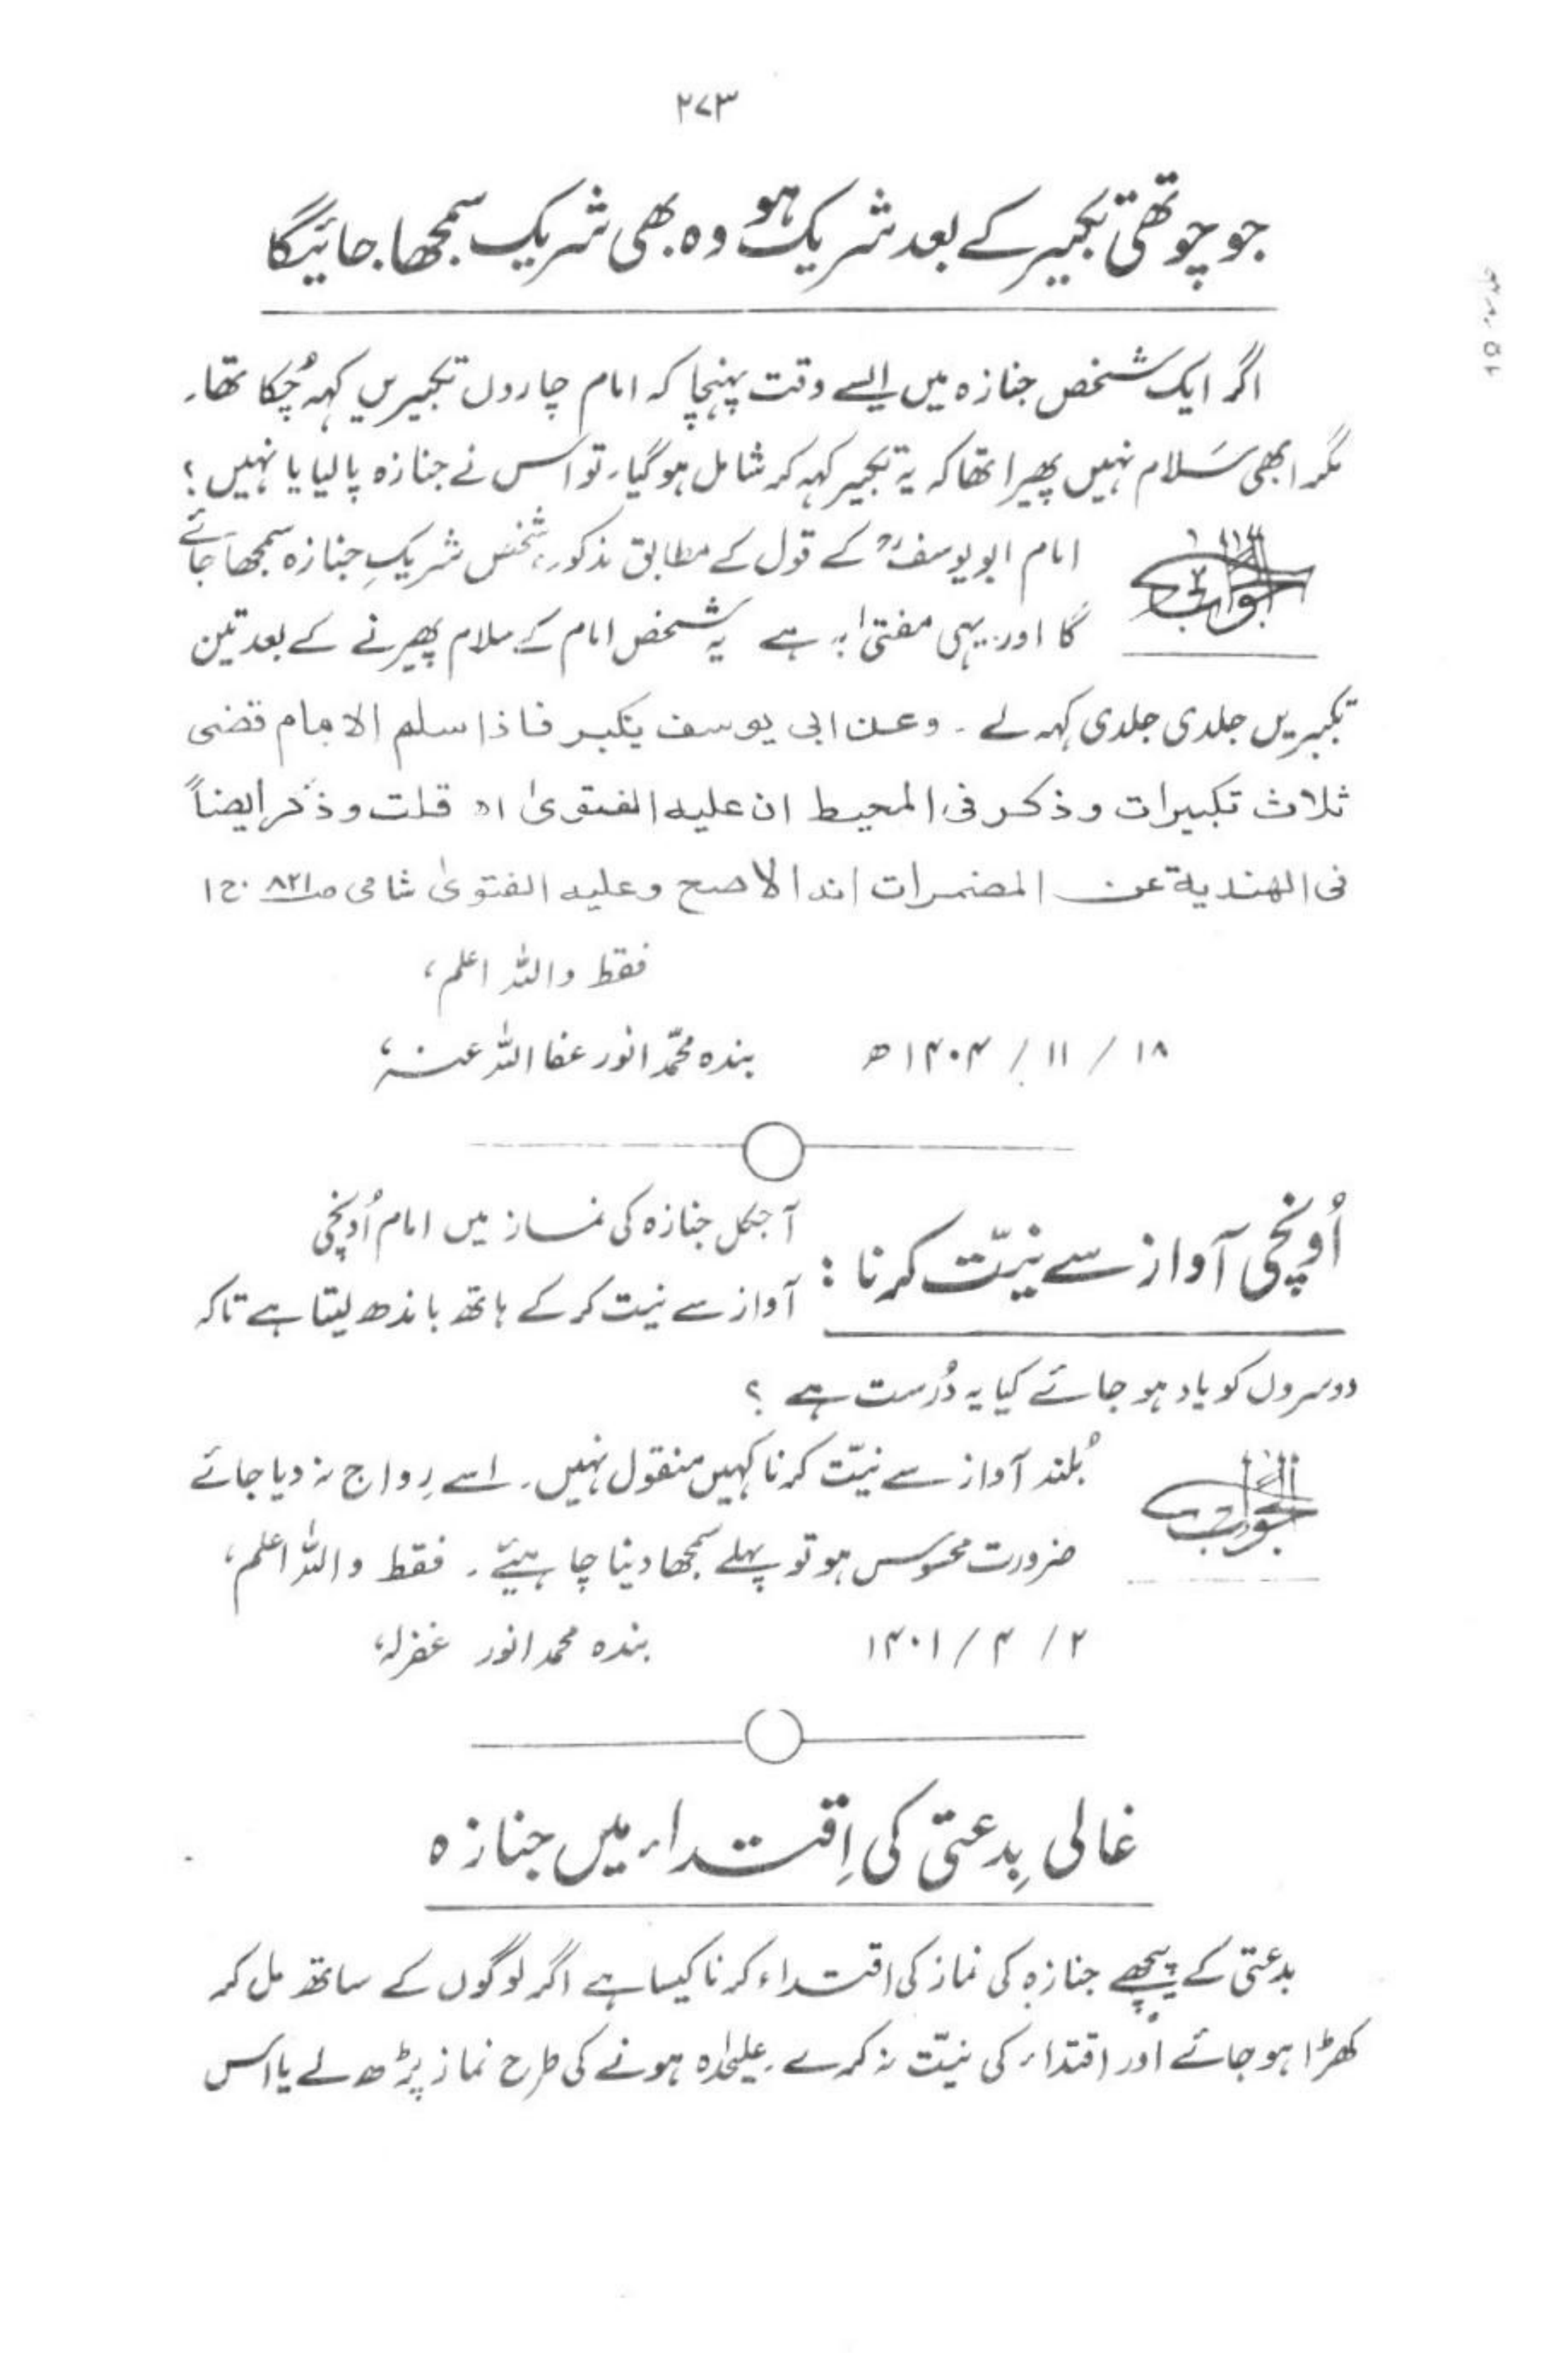 ۲۷۳
جو چوتھی تکبیر کے بعد شریک ہو وہ بھی شریک سمجھا جائیگا
اگر ایک شخص جنازہ میں ایسے وقت پہنچا کہ امام چاروں تکبیریں کہہ چُکا تھا۔
مگر ابھی سَلام نہیں پھیرا تھا کہ یہ تکبیر کہہ کر شامل ہو گیا۔ تو اس نے جنازہ پا لیا یا نہیں؟
الجواب
امام ابو یوسفؒ کے قول کے مطابق مذکور، شخص شریکِ جنازہ سمجھا جائے
گا اور یہی مفتیٰ بہ ہے یہ شخص امام کے سلام پھیرنے کے بعد تین
تکبیریں جلدی جلدی کہہ لے۔ وعن ابی یوسف یکبر فاذا سلم الامام قضی
ثلاث تکبیرات وذکر فی المحیط ان علیه الفتویٰ اه قلت وذکر ایضاً
فی الهندیة عن المضمرات انه الاصح وعلیه الفتویٰ شامی صـ۸۲۱ ج۱
فقط واللہ اعلم،
۱۸ / ۱۱ / ۱۴۰۴ھ بندہ محمّد انور عفا اللہ عنہ،
اُونچی آواز سے نیّت کرنا :
آجکل جنازہ کی نماز میں امام اُونچی
آواز سے نیت کر کے ہاتھ باندھ لیتا ہے تاکہ
دوسروں کو یاد ہو جائے کیا یہ دُرست ہے ؟
الجواب
بُلند آواز سے نیّت کرنا کہیں منقول نہیں۔ اسے رِواج نہ دیا جائے
ضرورت محسوس ہو تو پہلے سمجھا دینا چاہیئے۔ فقط واللہ اعلم،
۲ / ۴ / ۱۴۰۱ بندہ محمد انور غفرلہ،
غالی بِدعتی کی اِقتداء میں جنازہ
بدعتی کے پیچھے جنازہ کی نماز کی اقتداء کرنا کیسا ہے اگر لوگوں کے ساتھ مل کر
کھڑا ہو جائے اور اقتداء کی نیّت نہ کرے۔ علیحٰدہ ہونے کی طرح نماز پڑھ لے یا اس